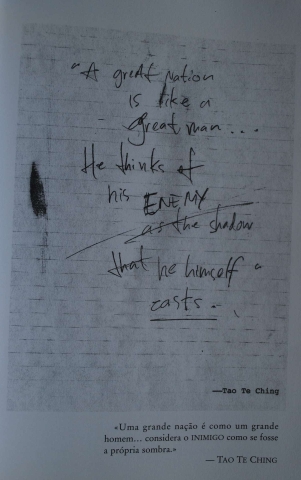 "A great nation
is like a
great man...
He thinks of
his ENEMY
as the shadow
that he himself "
casts.
—Tao Te Ching
«Uma grande nação é como um grande
homem... considera o INIMIGO como se fosse
a própria sombra.»
— TAO TE CHING